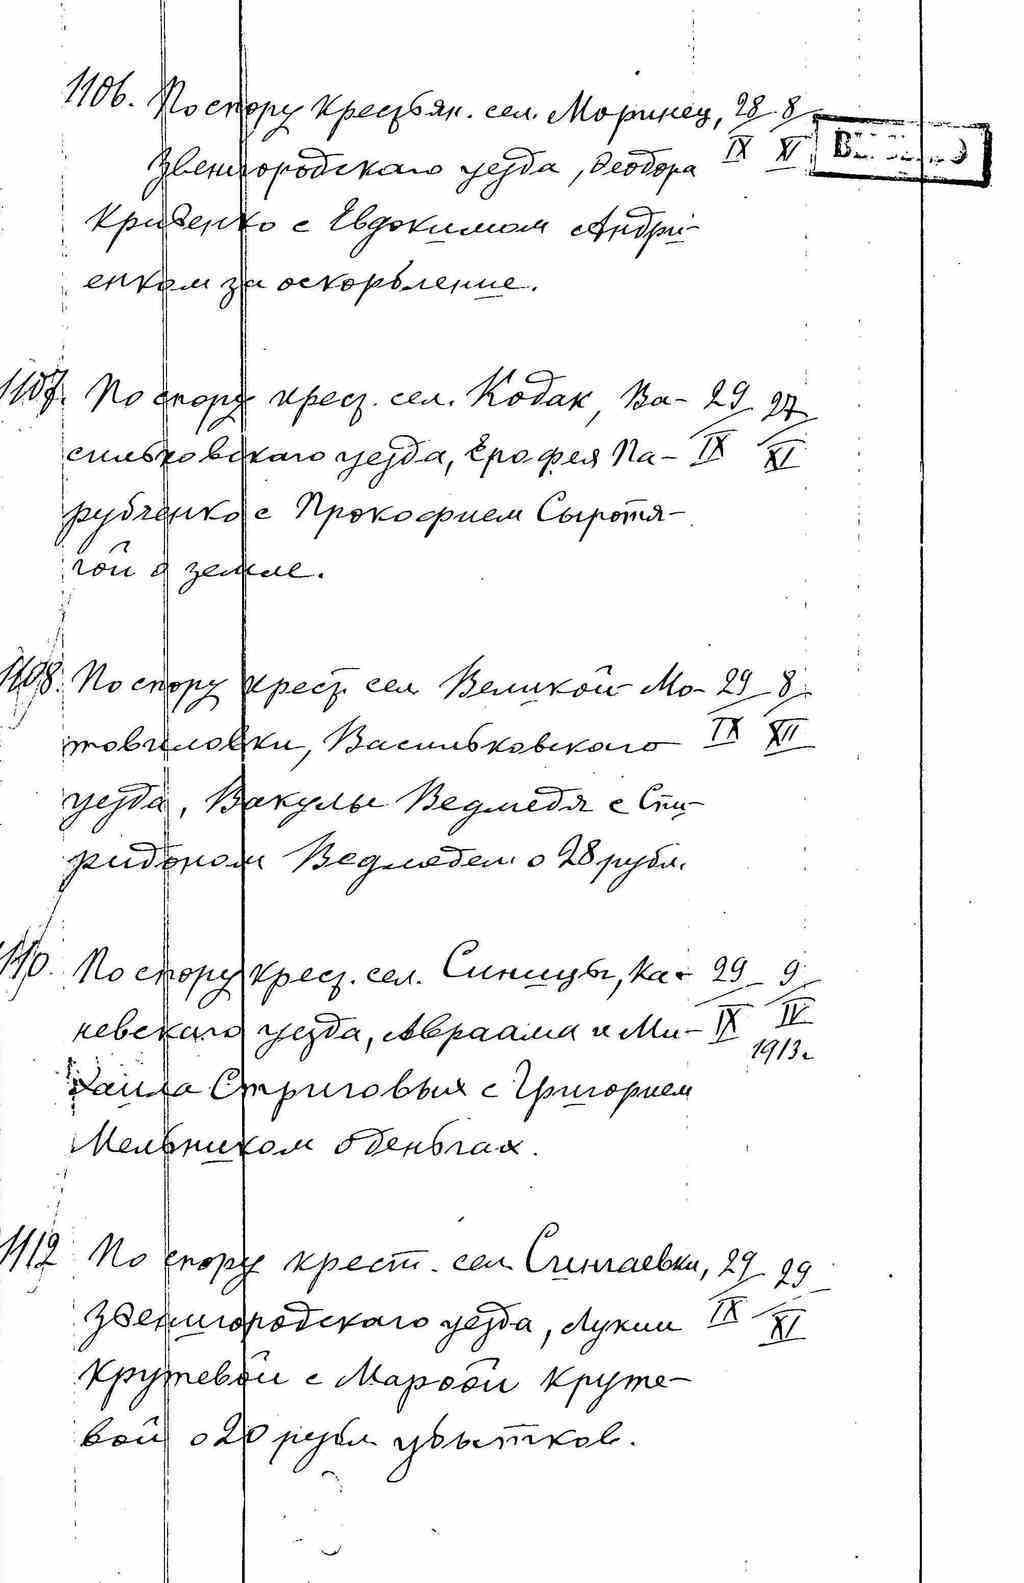 1106. По спору крестьян. сел. Моринец, 28 8
Звенигородскаго уезда, Феодора IX XI
Криденко с Евдокимом Андри-
енком за оскорбление.
1107. По спору крест. сел. Кодак, Ва- 29 27
сильковскаго уезда, Ерофея Па- IX XI
рубченко с Прокофием Сыротя-
гой о земле.
1108. По спору крест. сел. Великой Мо- 29 8
товиловки, Васильковскаго IX XII
уезда, Вакулы Ведмедя с Спи-
ридоном Ведмедем о 28 рубл.
1110. По спору крест. сел. Синицы, Ка- 29 9
невскаго уезда, Авраама и Ми- IX IV
хаила Стриговых с Григорием 1913 г.
Мельником о деньгах.
1112 По спору крест. сел. 29 29
Звенигородскаго уезда, Лукии IX XI
Крутевой с Марфой Круте-
вой о 20 рубл. убытков.